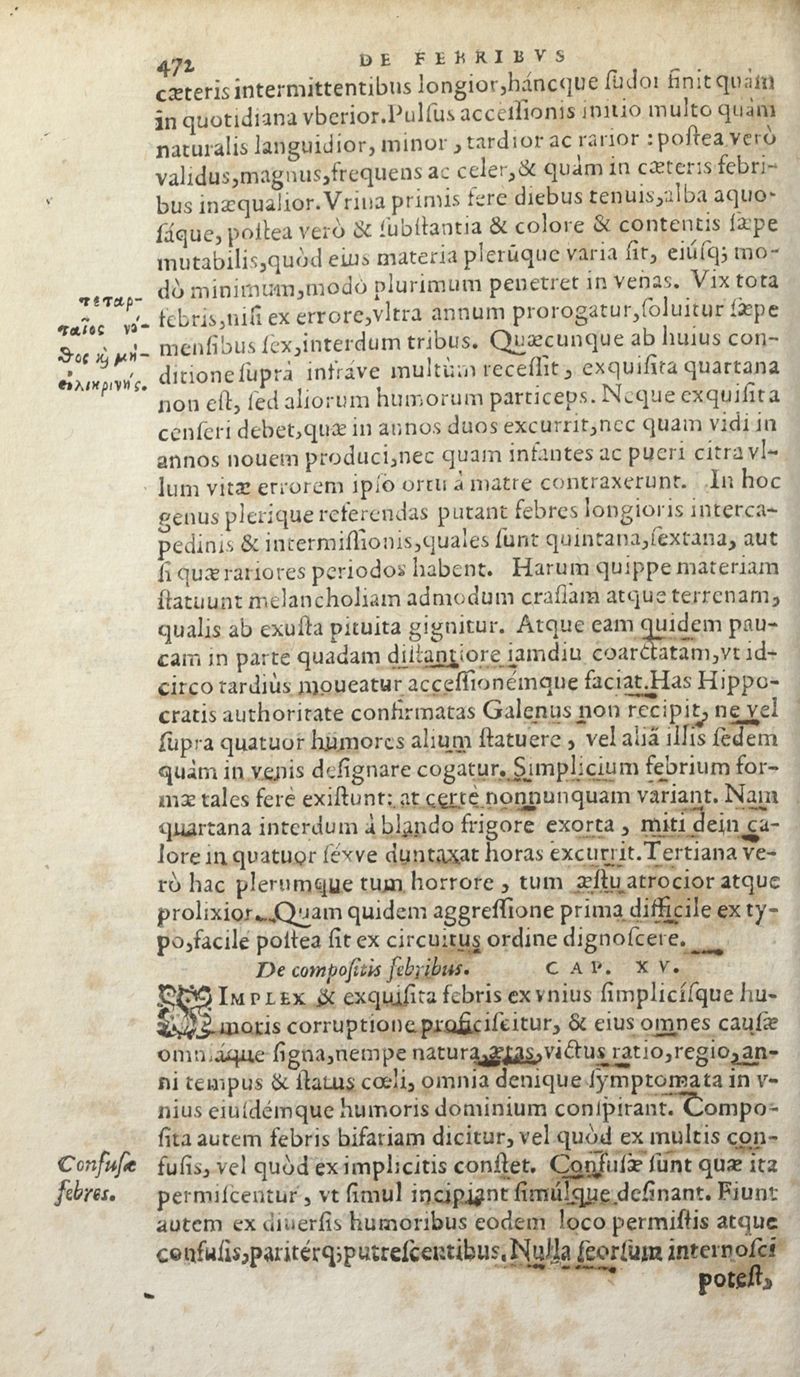 472 DE FEBRIBVS
cæteris intermittentibus longior, háncque sudor finit quàm
in quotidiana vberior. Pulsus accessionis initio multo quàm
naturalis languidior, minor, tardior ac rarior : postea verò
validus, magnus, frequens ac celer, & quàm in cæteris febri-
bus inæqualior. Vrina primis fere diebus tenuis, alba aquo-
sáque, postea verò & substantia & colore & contentis sæpe
mutabilis, quòd eius materia plerúque varia sit, eiúsq; mo-
dò minimum, modò plurimum penetret in venas. Vix tota
febris, nisi ex errore, vltra annum prorogatur, soluitur sæpe
mensibus sex, interdum tribus. Quæcunque ab huius con-
ditione suprà infráve multùm recessit, exquisita quartana
non est, sed aliorum humorum particeps. Neque exquisita
censeri debet, quæ in annos duos excurrit, nec quam vidi in
annos nouem produci, nec quam infantes ac pueri citra vl-
lum vitæ errorem ipso ortu à matre contraxerunt. In hoc
genus plerique referendas putant febres longioris interca-
pedinis & intermissionis, quales sunt quintana, sextana, aut
si quæ rariores periodos habent. Harum quippe materiam
statuunt melancholiam admodum crassam atque terrenam,
qualis ab exusta pituita gignitur. Atque eam quidem pau-
cam in parte quadam distantiore iamdiu coarctatam, vt id-
circo tardiùs moueatur accessionémque faciat. Has Hippo-
cratis authoritate confirmatas Galenus non recipit, ne vel
supra quatuor humores alium statuere, vel aliā illis sedem
quàm in venis designare cogatur. Simplicium febrium for-
mæ tales ferè existunt: at certe nonnunquam variant. Nam
quartana interdum à blando frigore exorta, miti dein ca-
lore in quatuor séxve duntaxat horas excurrit. Tertiana ve-
rò hac plerumque tum horrore, tum æstu atrocior atque
prolixior. Quam quidem aggressione prima difficile ex ty-
po, facile postea sit ex circuitus ordine dignoscere.
De compositis febribus. CAP. XV.
SIMPLEX & exquisita febris ex vnius simplicísque hu-
moris corruptione proficiscitur, & eius omnes causæ
omniáque signa, nempe natura, ætas, victus ratio, regio, an-
ni tempus & status cœli, omnia denique symptomata in v-
nius eiusdémque humoris dominium conspirant. Compo-
sita autem febris bifariam dicitur, vel quòd ex multis con-
fusis, vel quòd ex implicitis constet. Confusæ sunt quæ ita
permiscentur, vt simul incipiant simúlque desinant. Fiunt
autem ex diuersis humoribus eodem loco permistis atque
confusis, paritérq; putrescentibus. Nulla seorsum internosci
potest,
τεταρ-
ταῖος νό-
θος κὴ μὴ-
εἰλικρινής.
Confusæ
febres.